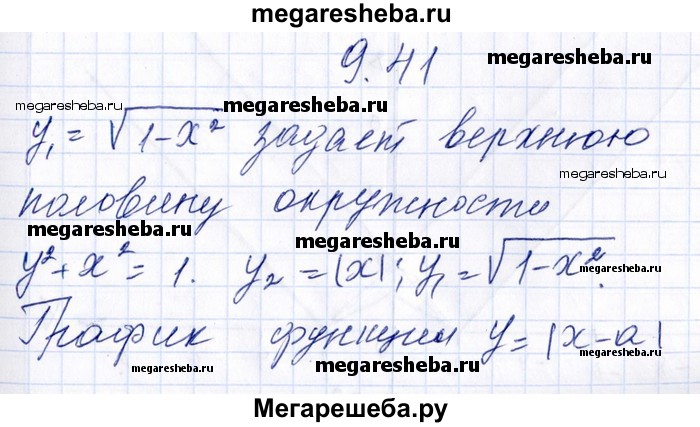 megaresheba.ru
9.41
megaresheba.ru
megaresheba.ru
megaresheba.ru
y₁ = √1-x² задает верхнюю
megaresheba.ru
половину окружности
megaresheba.ru
y² + x² = 1. y₂ = |x|; y₁ = √1-x².
megaresheba.ru
График функции y = |x-a|
megaresheba.ru
megaresheba.ru
Мегарешеба.ру